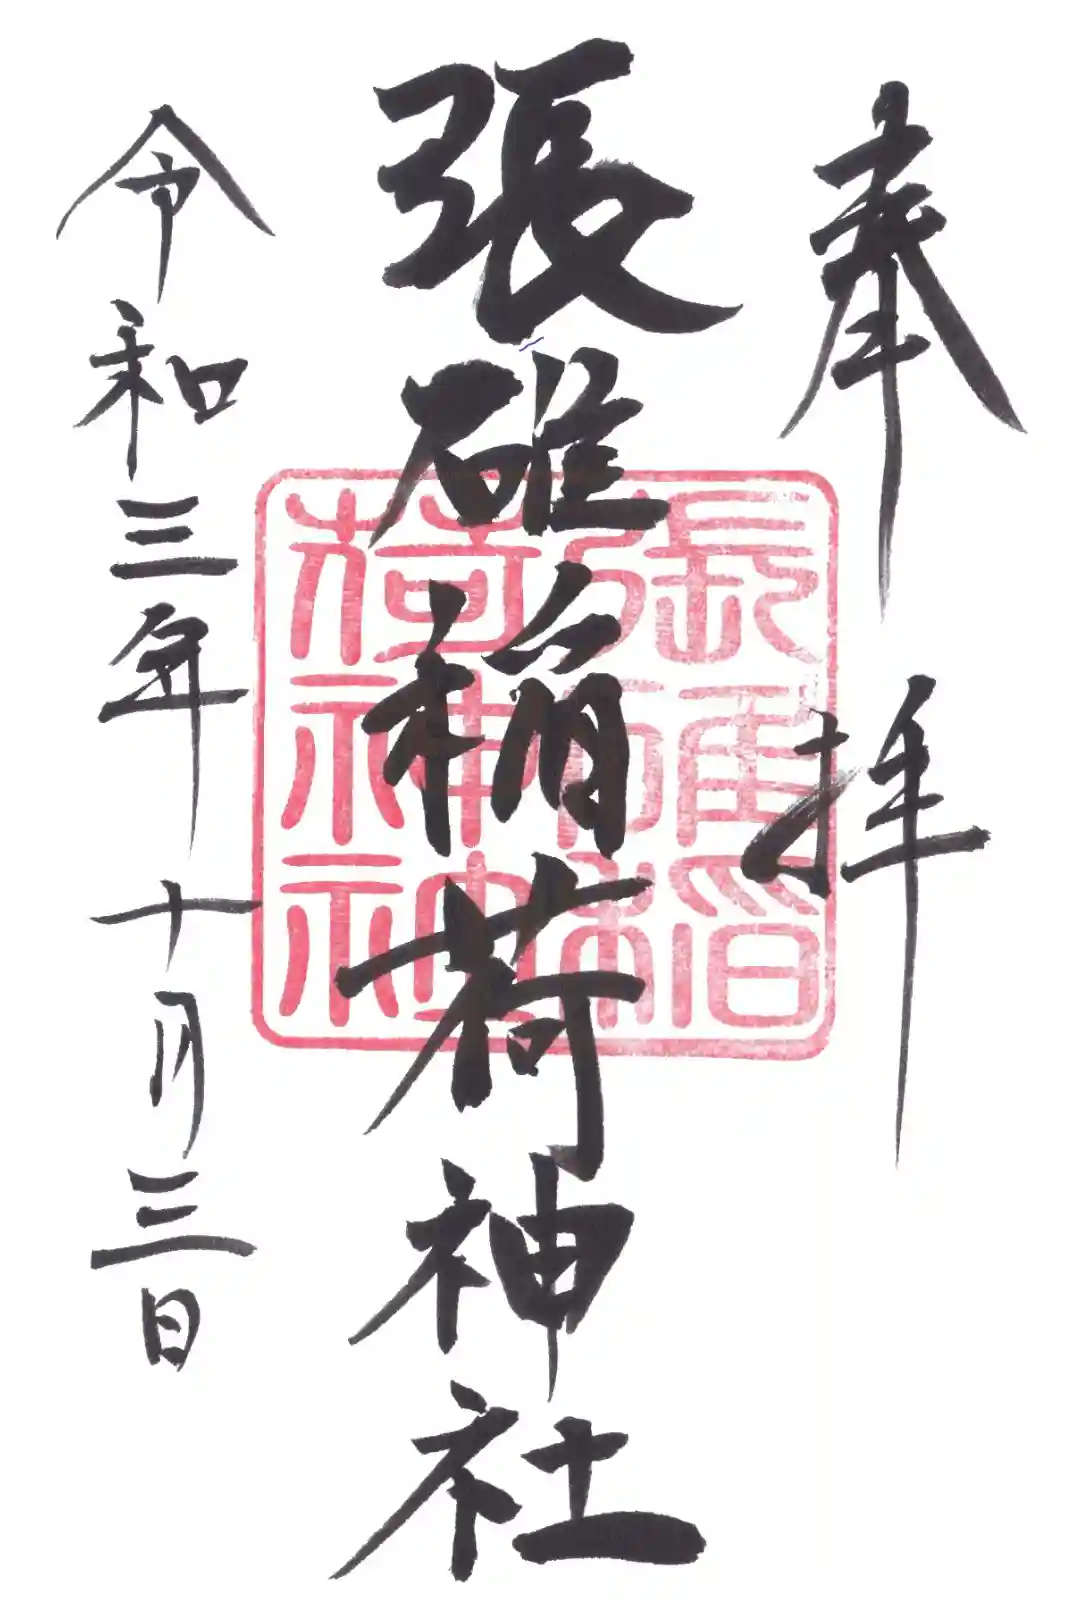 奉拝
張碓稲荷神社
令和三年十月三日
張碓稲
荷神社